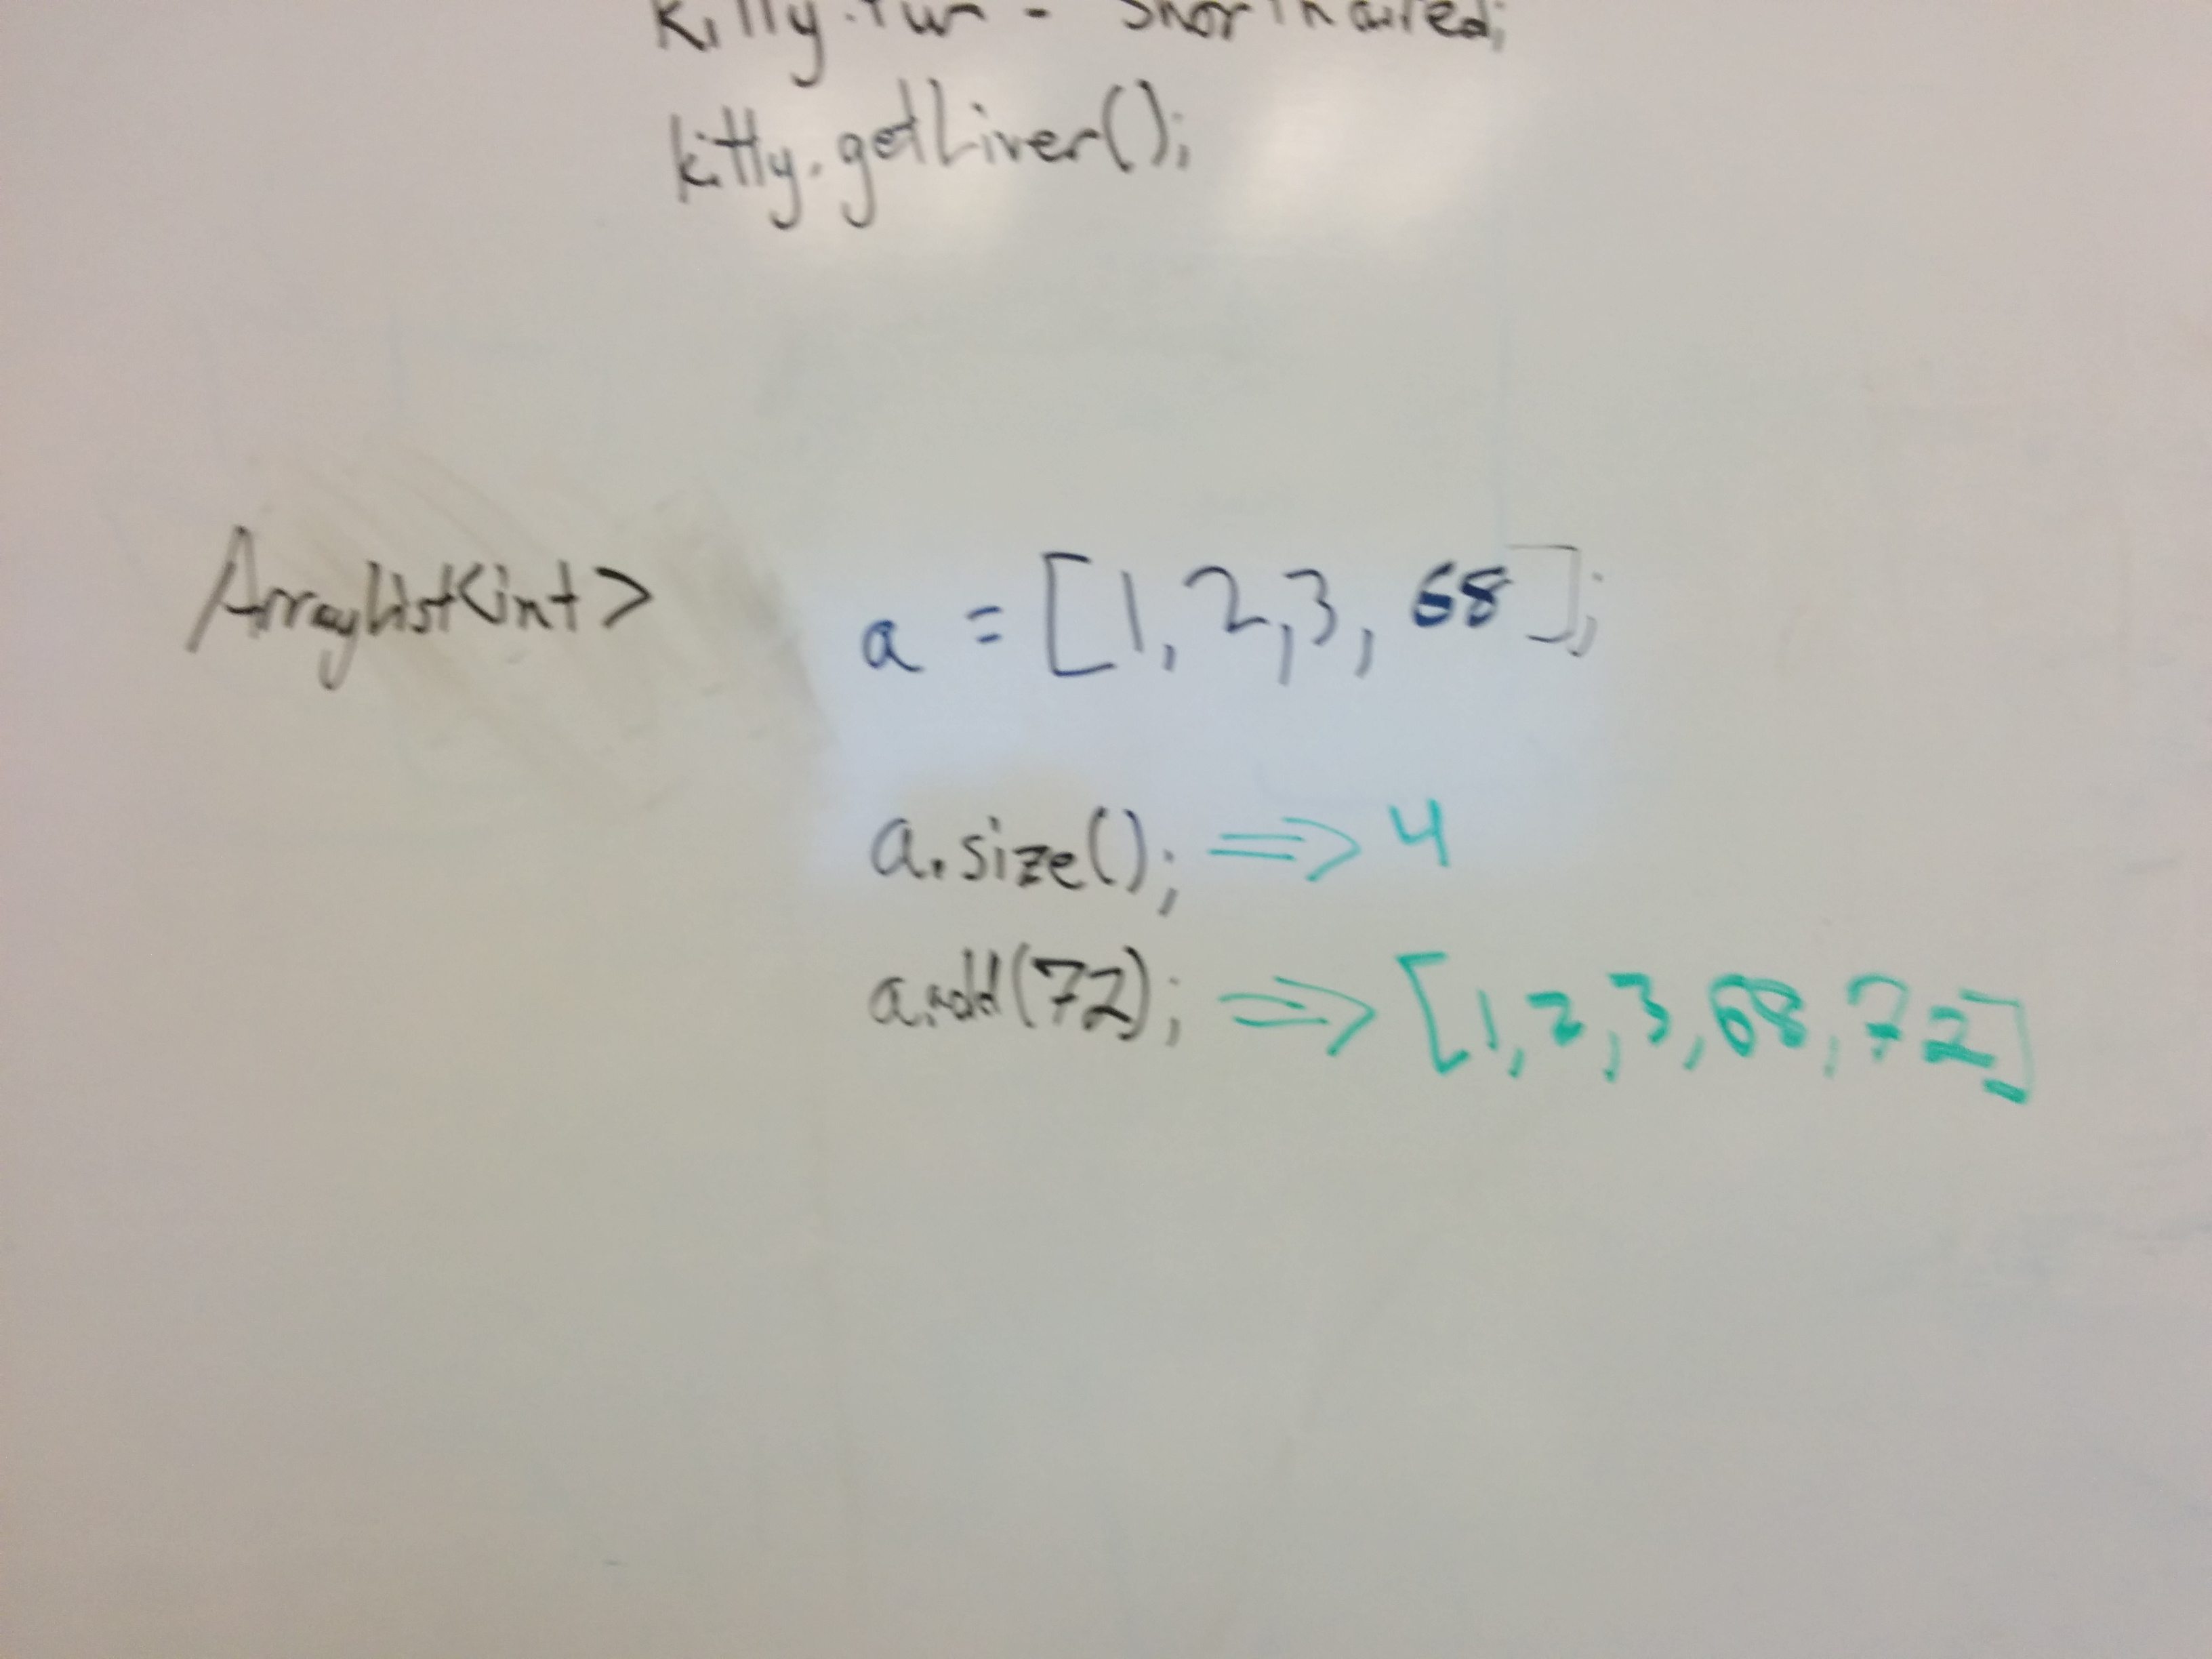 kitty.fur = shorthaired;
kitty.getLiver();
ArrayList<int> a = [1, 2, 3, 68];
a.size(); => 4
a.add(72); => [1, 2, 3, 68, 72]